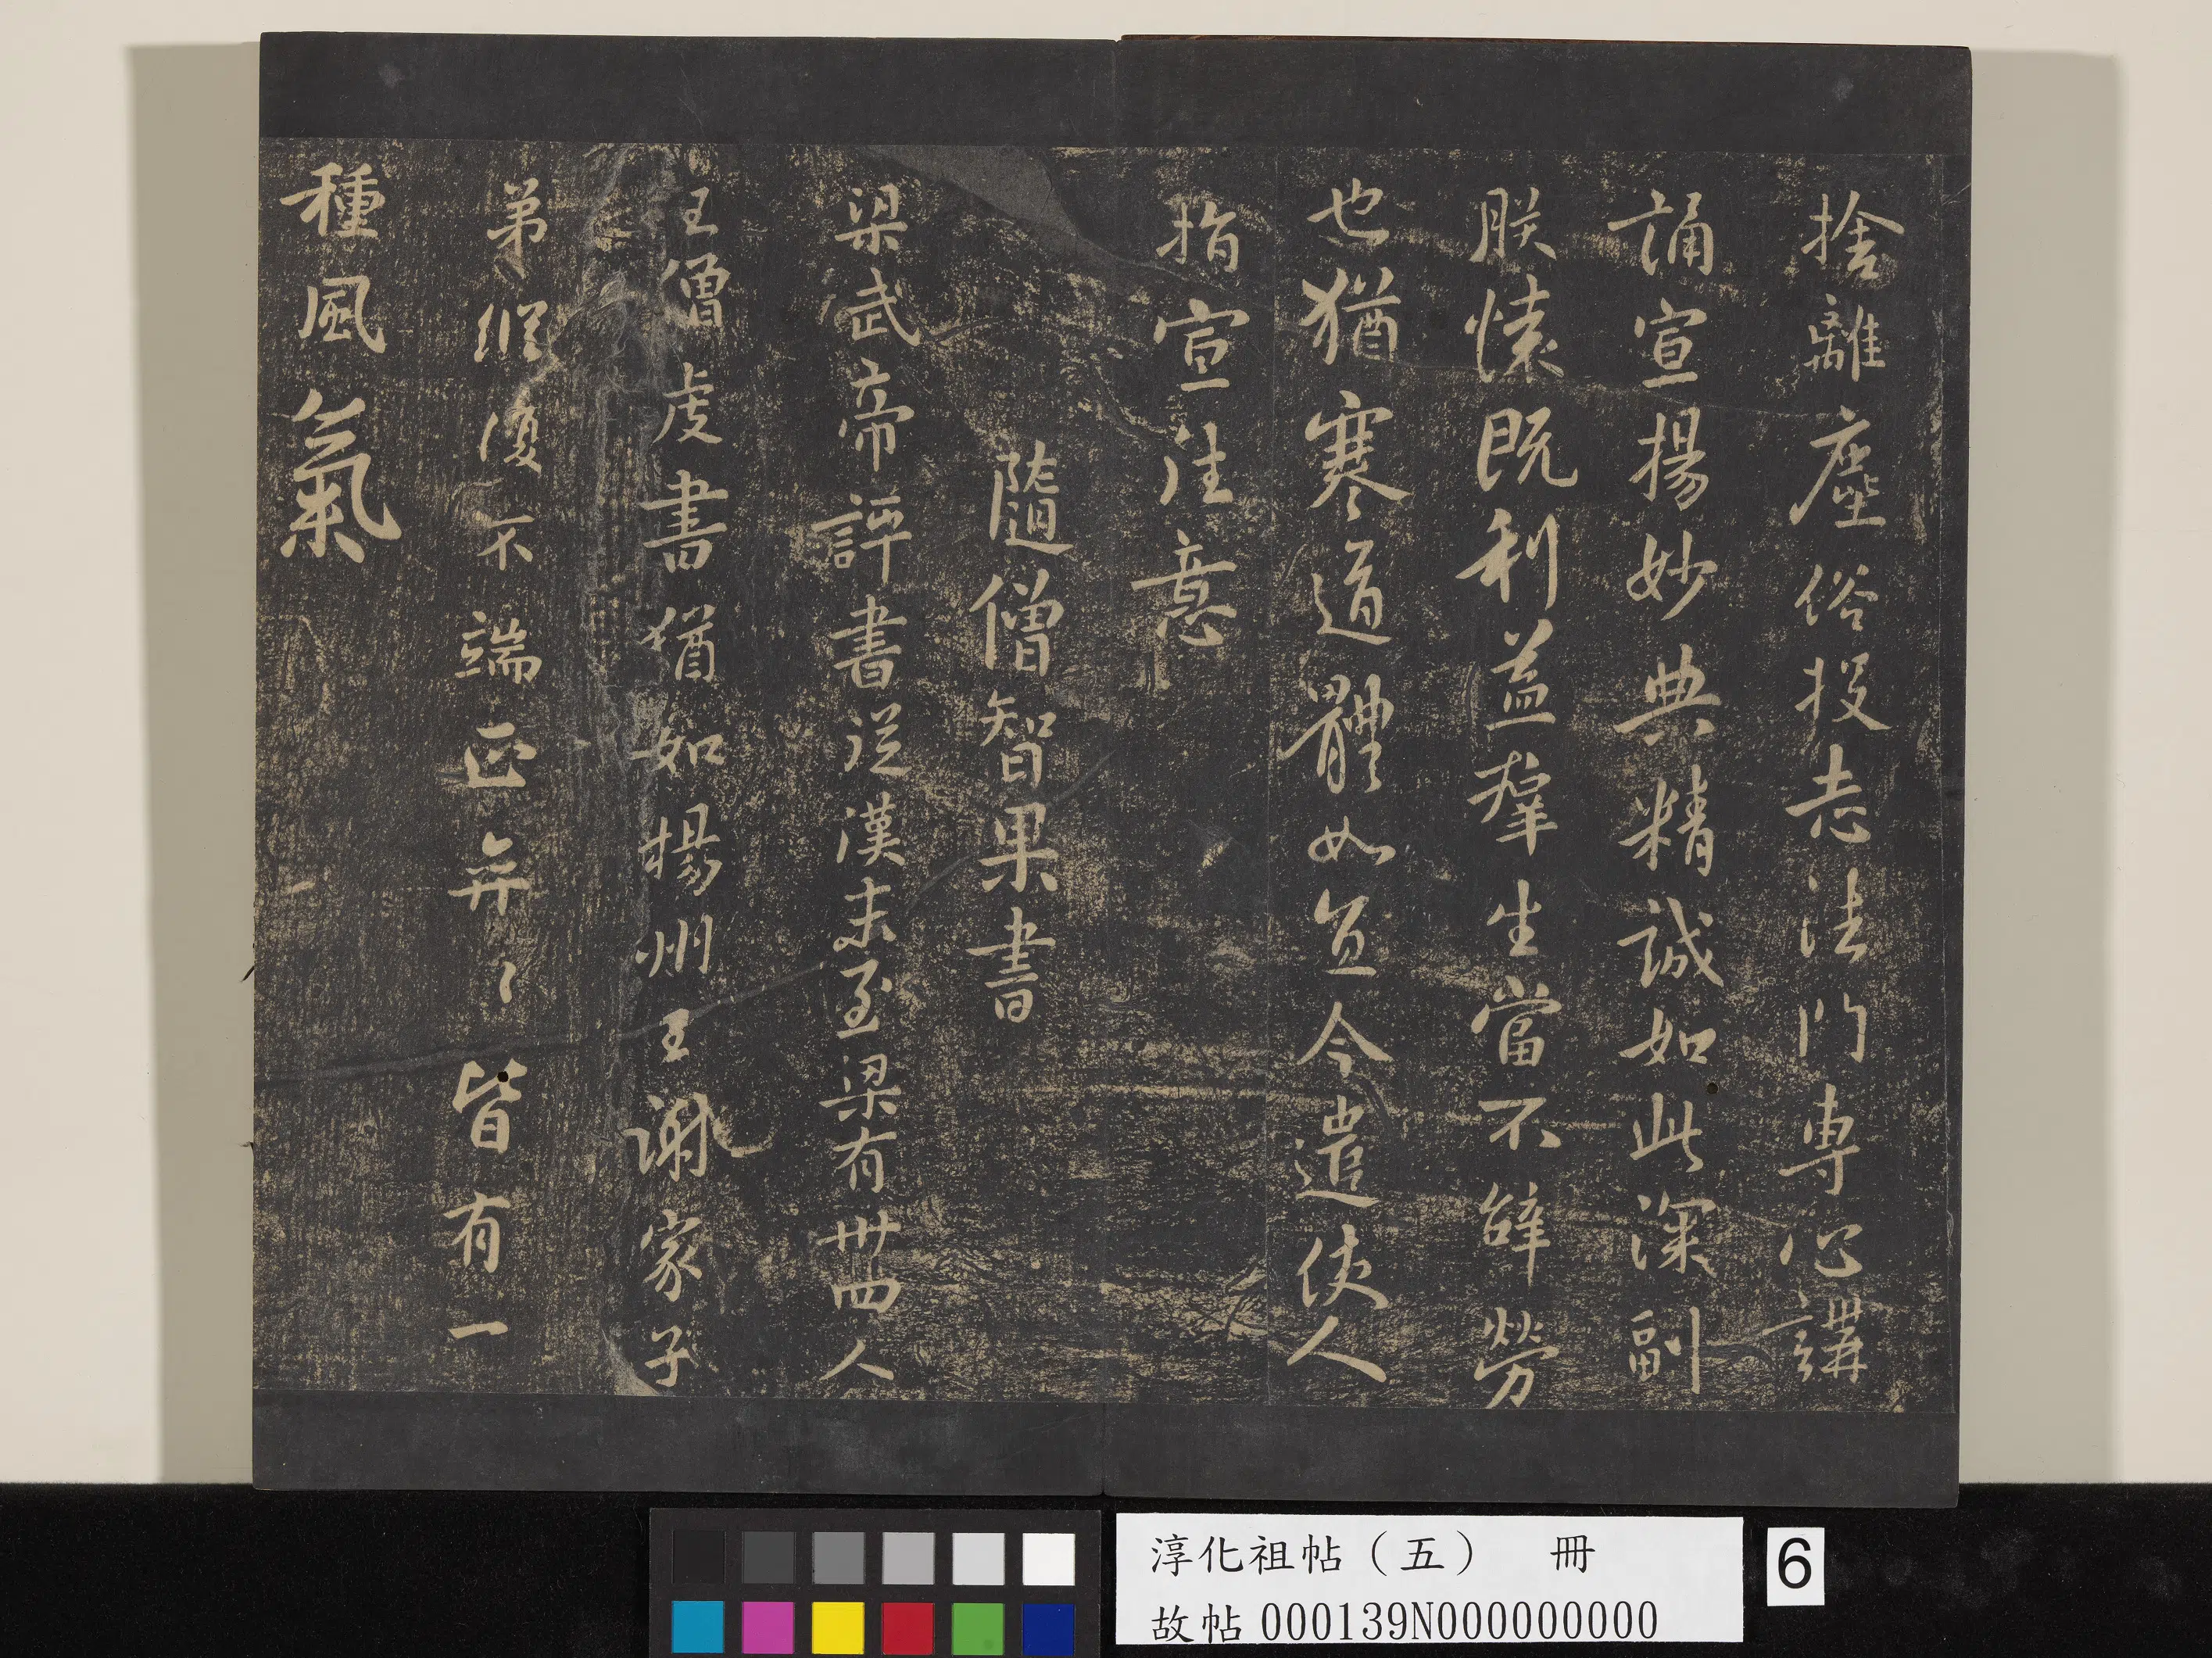 捨離塵俗投志法門専心講
誦宣揚妙典精誠如此深副
朕懷既利益羣生當不辭勞
也猶寒道體如宜今遣使人
指宣往意
隨僧智果書
梁武帝評書從漢末至梁有卅四人
王僧虔書猶如揚州王謝家子
弟縱復不端正弈〻皆有一
種風氣
淳化祖帖（五） 冊
故帖000139N000000000
6